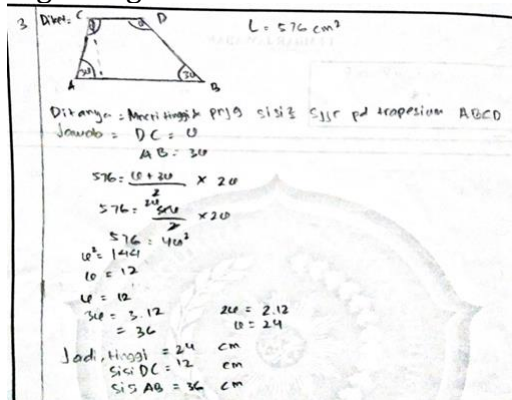 3 Diket: C D L = 576 cm²
A B
Ditanya = Mncri tinggi & pnjg sisi² sjjr pd trapesium ABCD
Jawab = DC = a
AB = 3a
576 = a + 3a / 2 × 2a
576 = 4a / 2 × 2a
576 = 4a²
a² = 144
a = 12
a = 12
3a = 3.12 2a = 2.12
= 36 a = 24
Jadi, tinggi = 24 cm
sisi DC = 12 cm
sisi AB = 36 cm